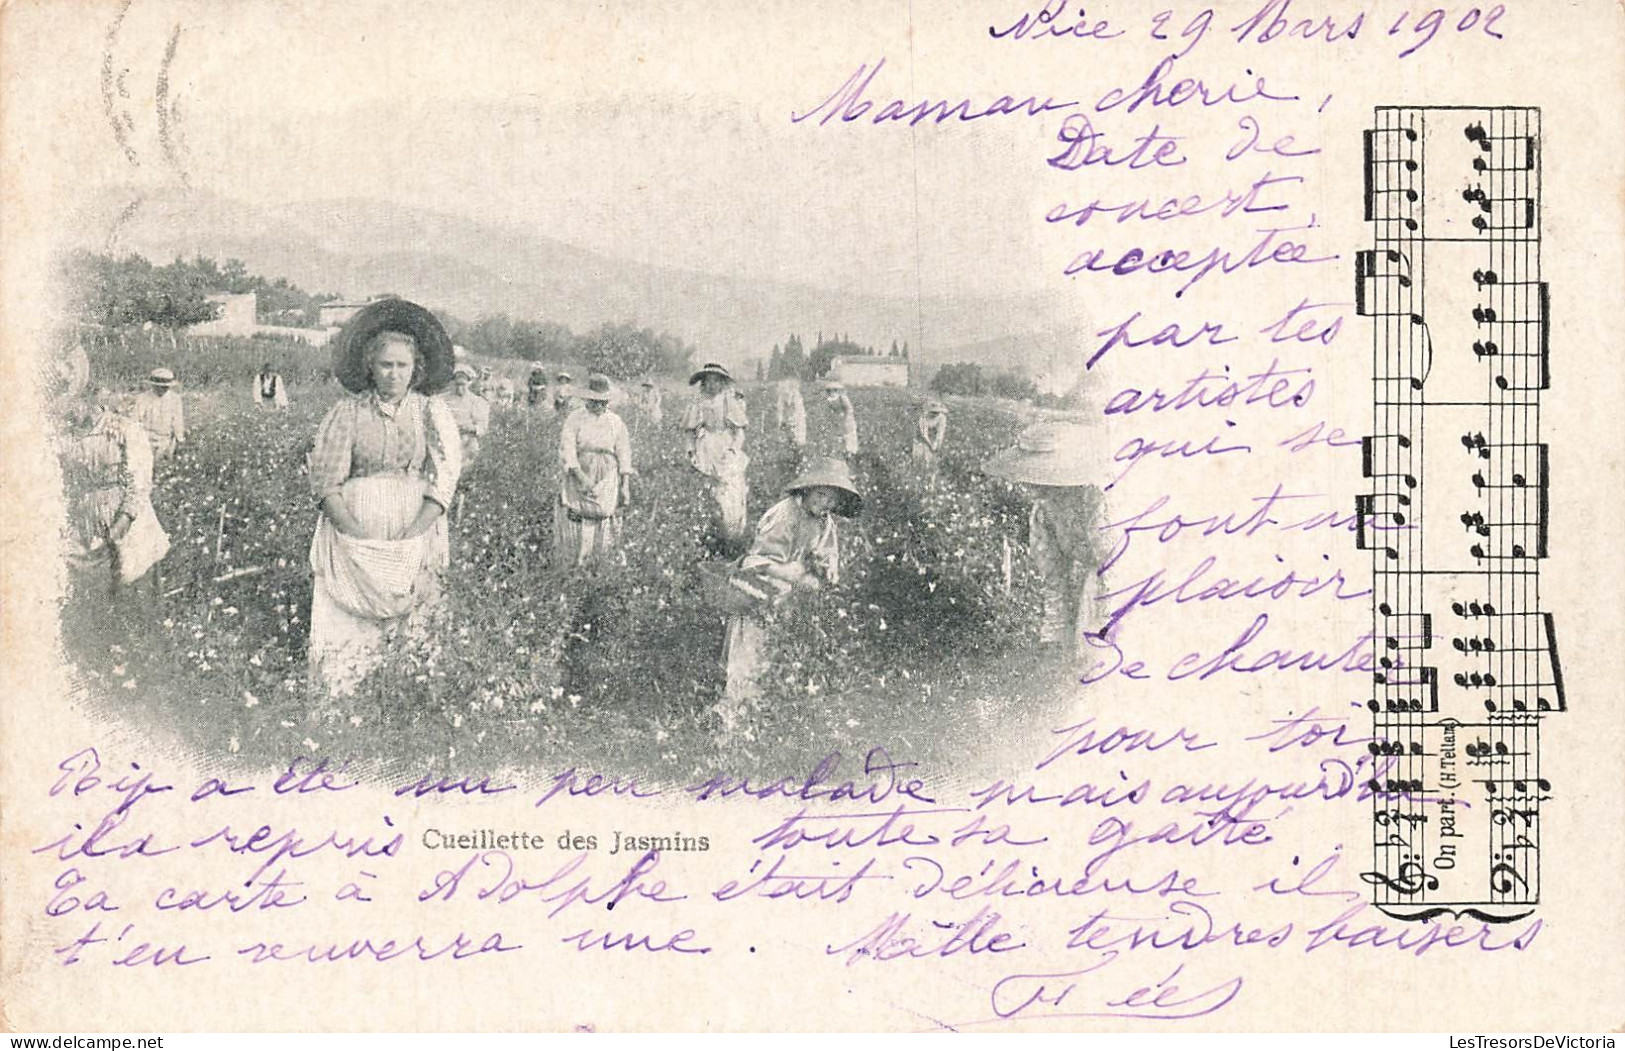 Nice 29 Mars 1902
Maman cherie,
Date de
concert,
acceptée
par tes
artistes
qui se
font un
plaisir
de chanter
pour toi,
a été un peu malade mais aujourd'hui
il a repris toute sa gaîté
Cueillette des Jasmins
Ta carte à Adolphe était délicieuse il
t'en renverra une. Mille tendres baisers
On part. (H. Tellam)
2
4
2
4
LesTresorsDeVictoria
LesTresorsDeVictoria.com